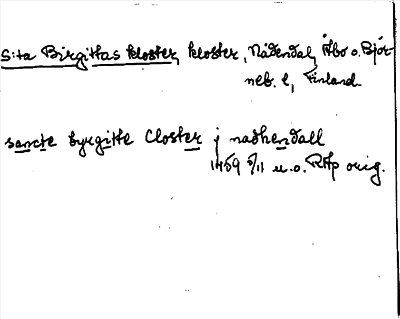 Sita Birgittas kloster, kloster, Nådendal, Åbo o. Björ-
neb. l., Finland.
sancte byrgitte Closter j nadhendall
1459 5/11 u.o. RAp orig.